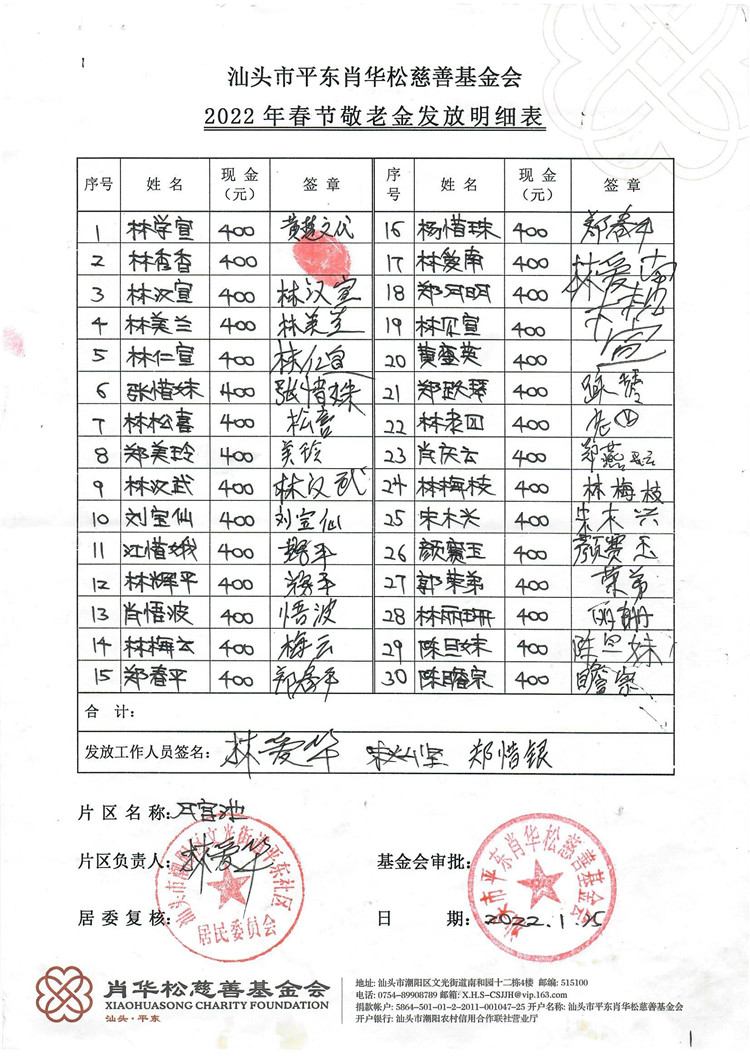 汕头市平东肖华松慈善基金会
2022年春节敬老金发放明细表
序号 姓名 现金(元) 签章 序号 姓名 现金(元) 签章
1 林学宣 400 黄楚文代 16 杨惜珠 400 郑春平
2 林香香 400 17 林爱南 400 林爱南
3 林汉宣 400 林汉宣 18 郑 明 400
4 林美兰 400 林美兰 19 林 宣 400 宣
5 林仁宣 400 林仁宣 20 黄 英 400
6 张惜妹 400 张惜珠 21 郑 琴 400
7 林松喜 400 松喜 22 林 四 400
8 郑美玲 400 美玲 23 肖庆云 400 郑燕
9 林汉武 400 林汉武 24 林梅枝 400 林梅枝
10 刘宝仙 400 刘宝仙 25 宋木兴 400 宋木兴
11 江惜娥 400 辉平 26 颜赛玉 400 颜赛玉
12 林辉平 400 辉平 27 郭荣弟 400 荣弟
13 肖悟波 400 悟波 28 林丽珊 400 丽珊
14 林梅云 400 梅云 29 陈 妹 400 陈 妹
15 郑春平 400 郑春平 30 陈瞻宗 400 瞻宗
合计:
发放工作人员签名: 林爱华 郑惜银
片区名称: 宫池
片区负责人: 林爱华 基金会审批:
居委复核: 日期: 2022.1.15
汕头市潮阳区文光街道平东社区
居民委员会
汕头市平东肖华松慈善基金会
肖华松慈善基金会
XIAOHUASONG CHARITY FOUNDATION
汕头·平东
地址: 汕头市潮阳区文光街道南和园十二栋4楼 邮编: 515100
电话: 0754-89908789 邮箱: X.H.S-CSJJH@vip.163.com
捐款帐户: 5864-501-01-2-2011-001047-25 开户名称: 汕头市平东肖华松慈善基金会
开户银行: 汕头市潮阳农村信用合作联社营业厅